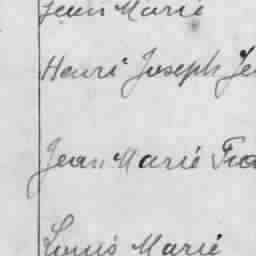 Jean Marie
Henri Joseph
Jean Marie
Louis Marie